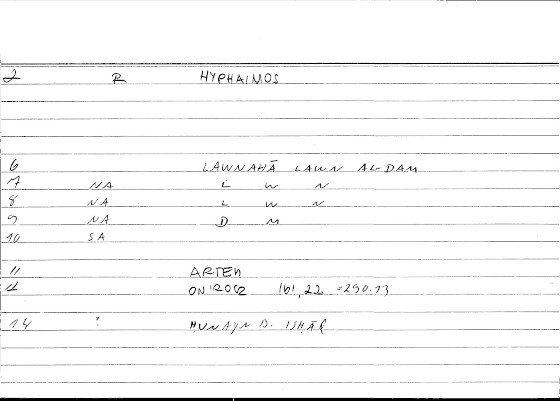 2 R HYPHAIMOS
6 LAWNAHĀ LAWN AL-DAM
7 NA L W N
8 NA L W N
9 NA D M
10 SA
11 ARTEM
12 ONIROCR 161,22 =290.13
14 ? HUNAYN B. ISHĀR